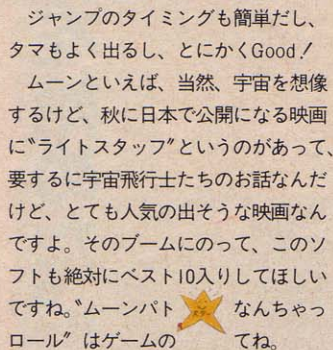 ジャンプのタイミングも簡単だし、
タマもよく出るし、とにかくGood!
ムーンといえば、当然、宇宙を想像
するけど、秋に日本で公開になる映画
に〝ライトスタッフ〟というのがあって、
要するに宇宙飛行士たちのお話なんだ
けど、とても人気の出そうな映画なん
ですよ。そのブームにのって、このソ
フトも絶対にベスト10入りしてほしい
ですね。〝ムーンパト
ロール〟はゲームの
スター
なんちゃっ
てね。